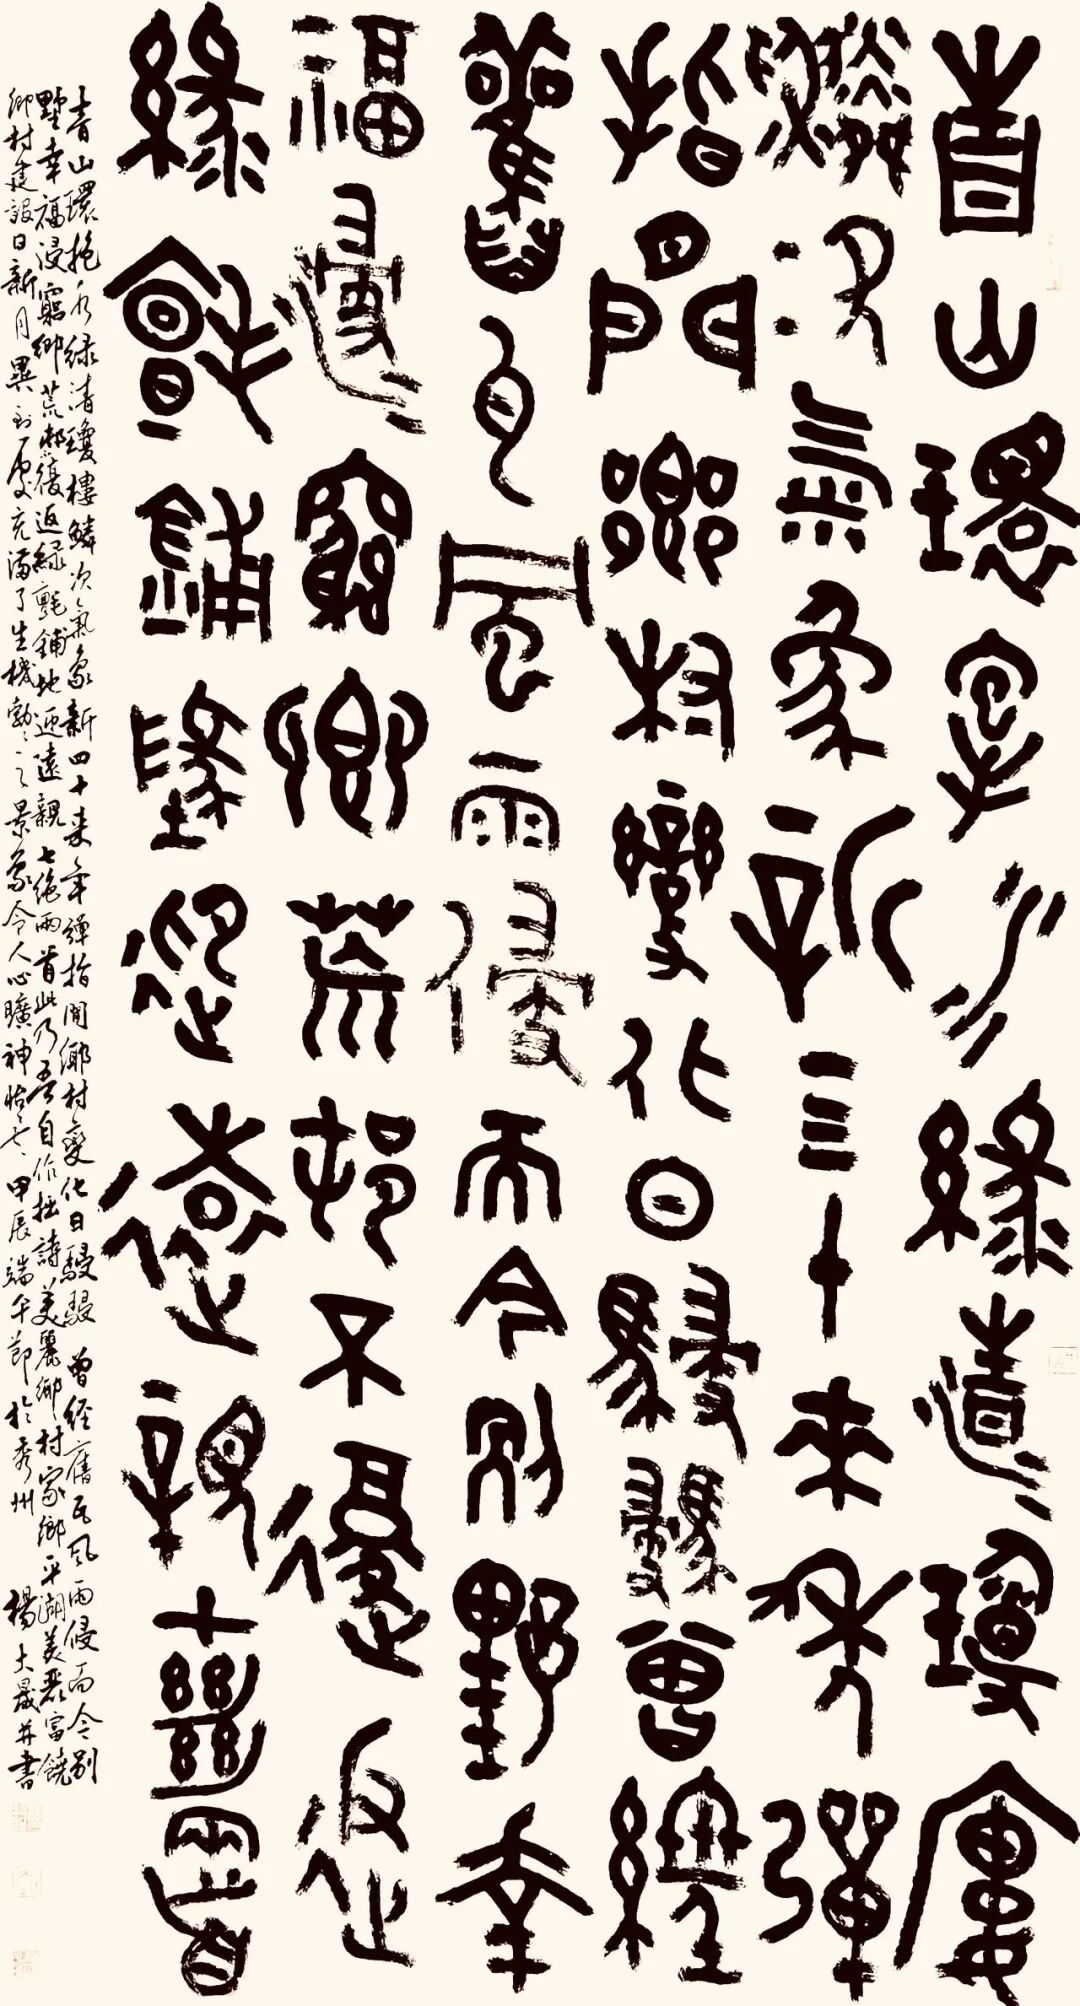 青山環抱水綠清瓊樓
鱗次氣象新四十來年彈
指間鄉村變化日駸駸曾經
舊瓦風雨侵而今別墅幸
福浸窮鄉荒邨不復返
綠氈鋪地迎遠親七絕兩首
青山環抱水綠清瓊樓鱗次氣象新四十來年彈指間鄉村變化日駸駸曾經舊瓦風雨侵而今別
墅幸福浸窮鄉荒邨不復返綠氈鋪地迎遠親七絕兩首此乃吾自作拙詩美麗鄉村家鄉平湖美麗富饒
鄉村建設日新月異到處充滿了生機勃勃之景象令人心曠神怡也甲辰端午節於秀州楊大晟并書